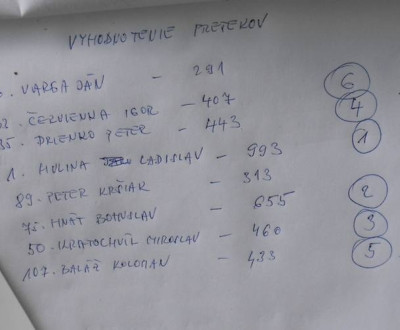 VYHODNOTENIE PRETEKOV
VARGA JÁN - 291 6
ČERVIENKA IGOR - 407 4
35. DRIENKO PETER - 443 1
1. HULINA LADISLAV - 993
89. PETER KRŠIAK - 313 2
75. HNÁT BOHUSLAV - 655 3
50. KRATOCHVÍL MIROSLAV - 460 5
107. BALÁŽ KOLOMAN - 433